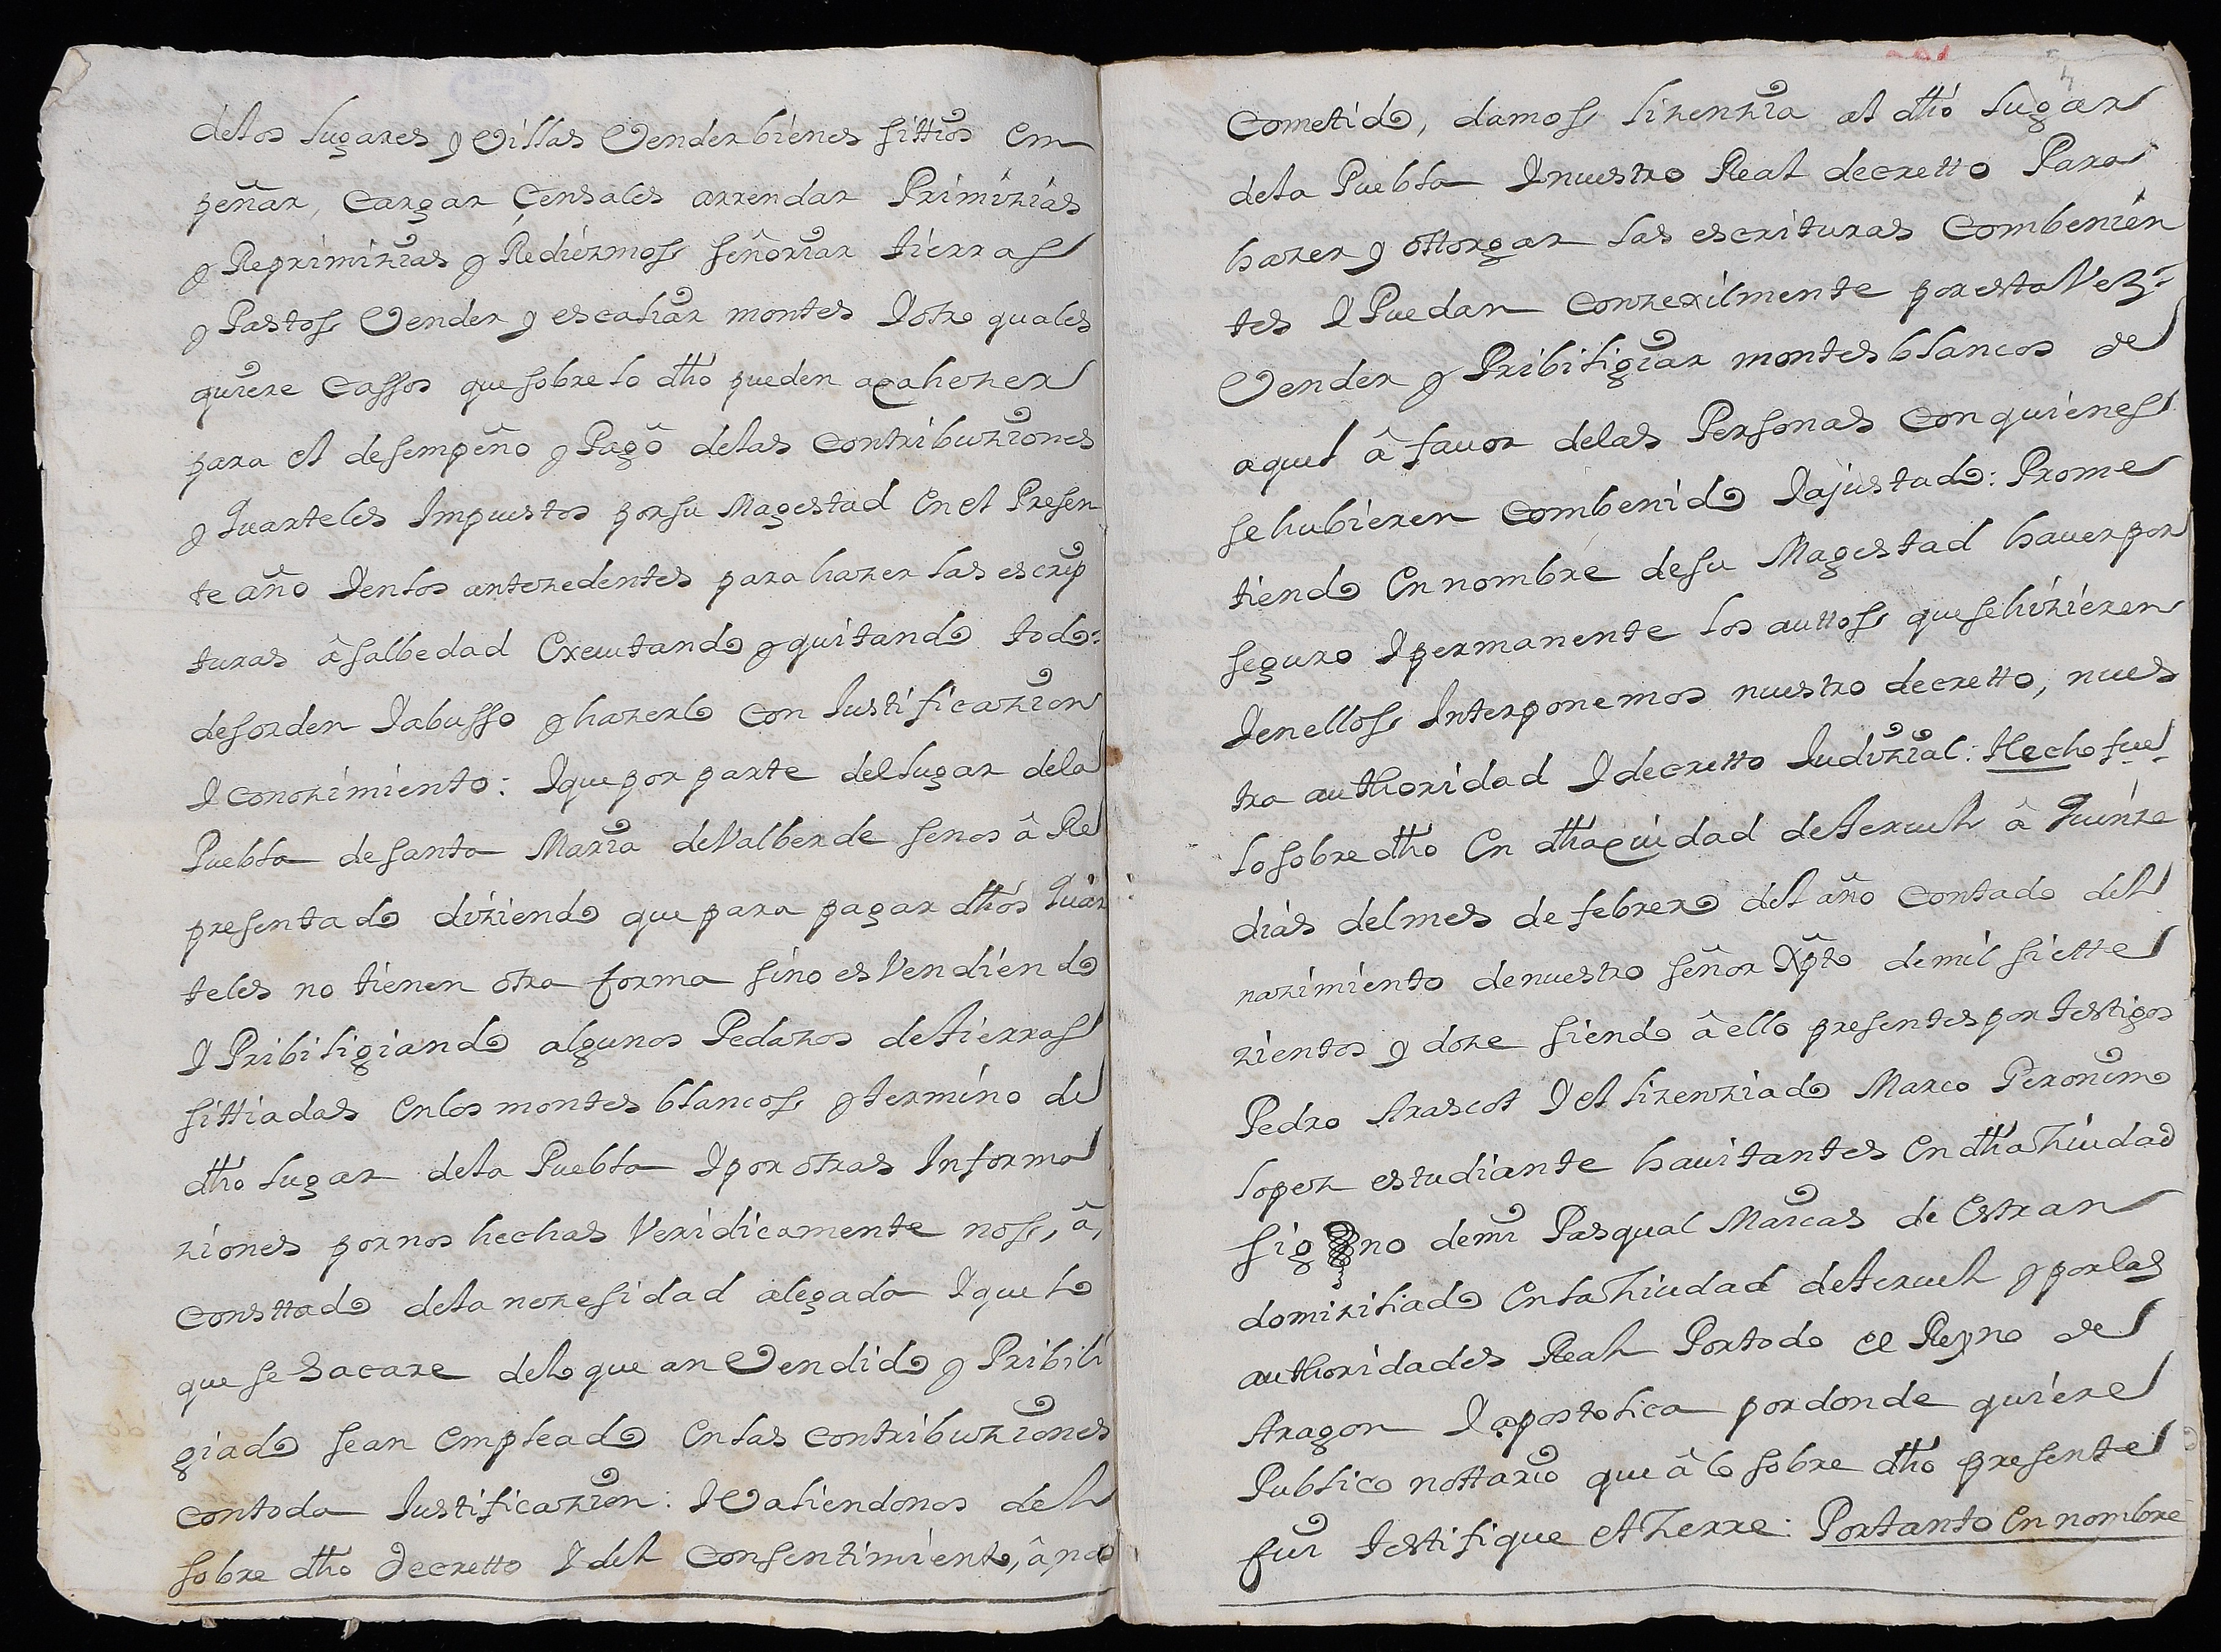 delos lugares y Villas Vender bienes sittios em
peñar, cargar Çensales arrendar Primizias
y Reprimizias y Rediezmos señoriar tierras
y Pastos Vender y escaliar montes Y otro quales
quiere cassos que sobre lo dho pueden acahezer
para el desempeño y Pagô delas contribuziones
y Quarteles Impuestos por su Magestad en el Presen
te año Y en los antezedentes para hazer las escrip
turas âsalbedad Executando y quitando todo:
desorden Y abusso y hazerlo con Justificazion
Y conozimiento: Y que por parte del lugar dela
Puebla de santa Maria de Valberde se nos â Re
presentado diziendo que para pagar dhos Quar
teles no tienen otra forma sino es Vendiendo
Y Pribiligiando algunos Pedazos de tierras
sittiadas en los montes blancos y termino de
dho lugar dela Puebla Y por otras Informa
ziones por nos hechas Veridicamente nos, â,
consttado dela nezesidad alegada Y que lo
que se sacare delo que an Vendido y Pribili
giado sean empleado en las contribuziones
con toda Justificazion: Y Valiendonos del
sobre dho decretto Y del consentimiento, â, nos
4
cometido, damos lizenzia al dho lugar
dela Puebla Y nuestro Real decretto Para
hazer y ottorgar las escrituras combenien
tes Y Puedan conzexilmente por esta Vez:
Vender y Pribiligiar montes blancos de
aquel â favor delas Personas con quienes
se hubieren combenido Y ajustado: Prome
tiendo en nombre de su Magestad haver por
seguro Y permanente los auttos que se hizieren
Y en ellos Interponemos nuestro decretto, nues
tra authoridad Y decretto Judizial: Hecho fue
lo sobre dho en dha Ciudad de teruel â Quinze
dias del mes de febrero del año contado del
nazimiento de nuestro señor Xpto de mil siette
zientos y doze siendo â ello presentes por testigos
Pedro Arascot Y el lizenziado Marco Geronimo
lopez estudiante havitantes en dha Ziudad
sig no de mi Pasqual Marcas de Estran
domiziliado en la Ziudad de teruel y por las
authoridades Real Por todo el Reyno de
Aragon Y apostolica por donde quiere
Publico nottario que â lo sobre dho presente
fui testifique et Zerre: Portanto en nombre